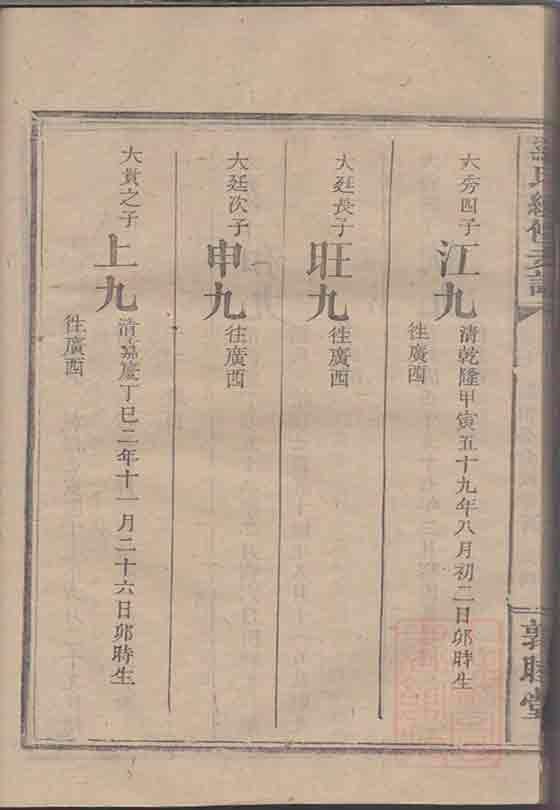 氏續修支譜
敦睦堂
大秀四子
江九
清乾隆甲寅五十九年八月初二日卯時生
徃廣西
大廷長子
旺九
徃廣西
大廷次子
申九
徃廣西
大貴之子
上九
清嘉慶丁巳二年十一月二十六日卯時生
徃廣西